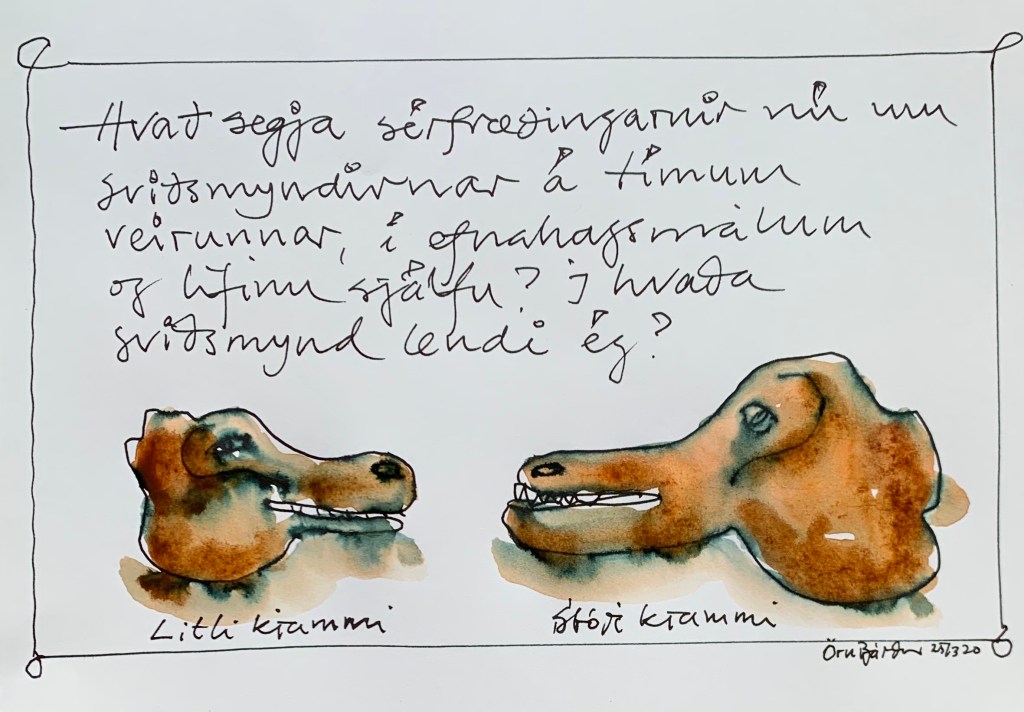 Hvað segja sérfræðingarnir nú um
sviðsmyndirnar á tímum
veirunnar, í efnahagsmálum
og lífinu sjálfu? Í hvaða
sviðsmynd lendi ég?
Litli kjammi
Stóri kjammi
Örn Bárður 25/3 20